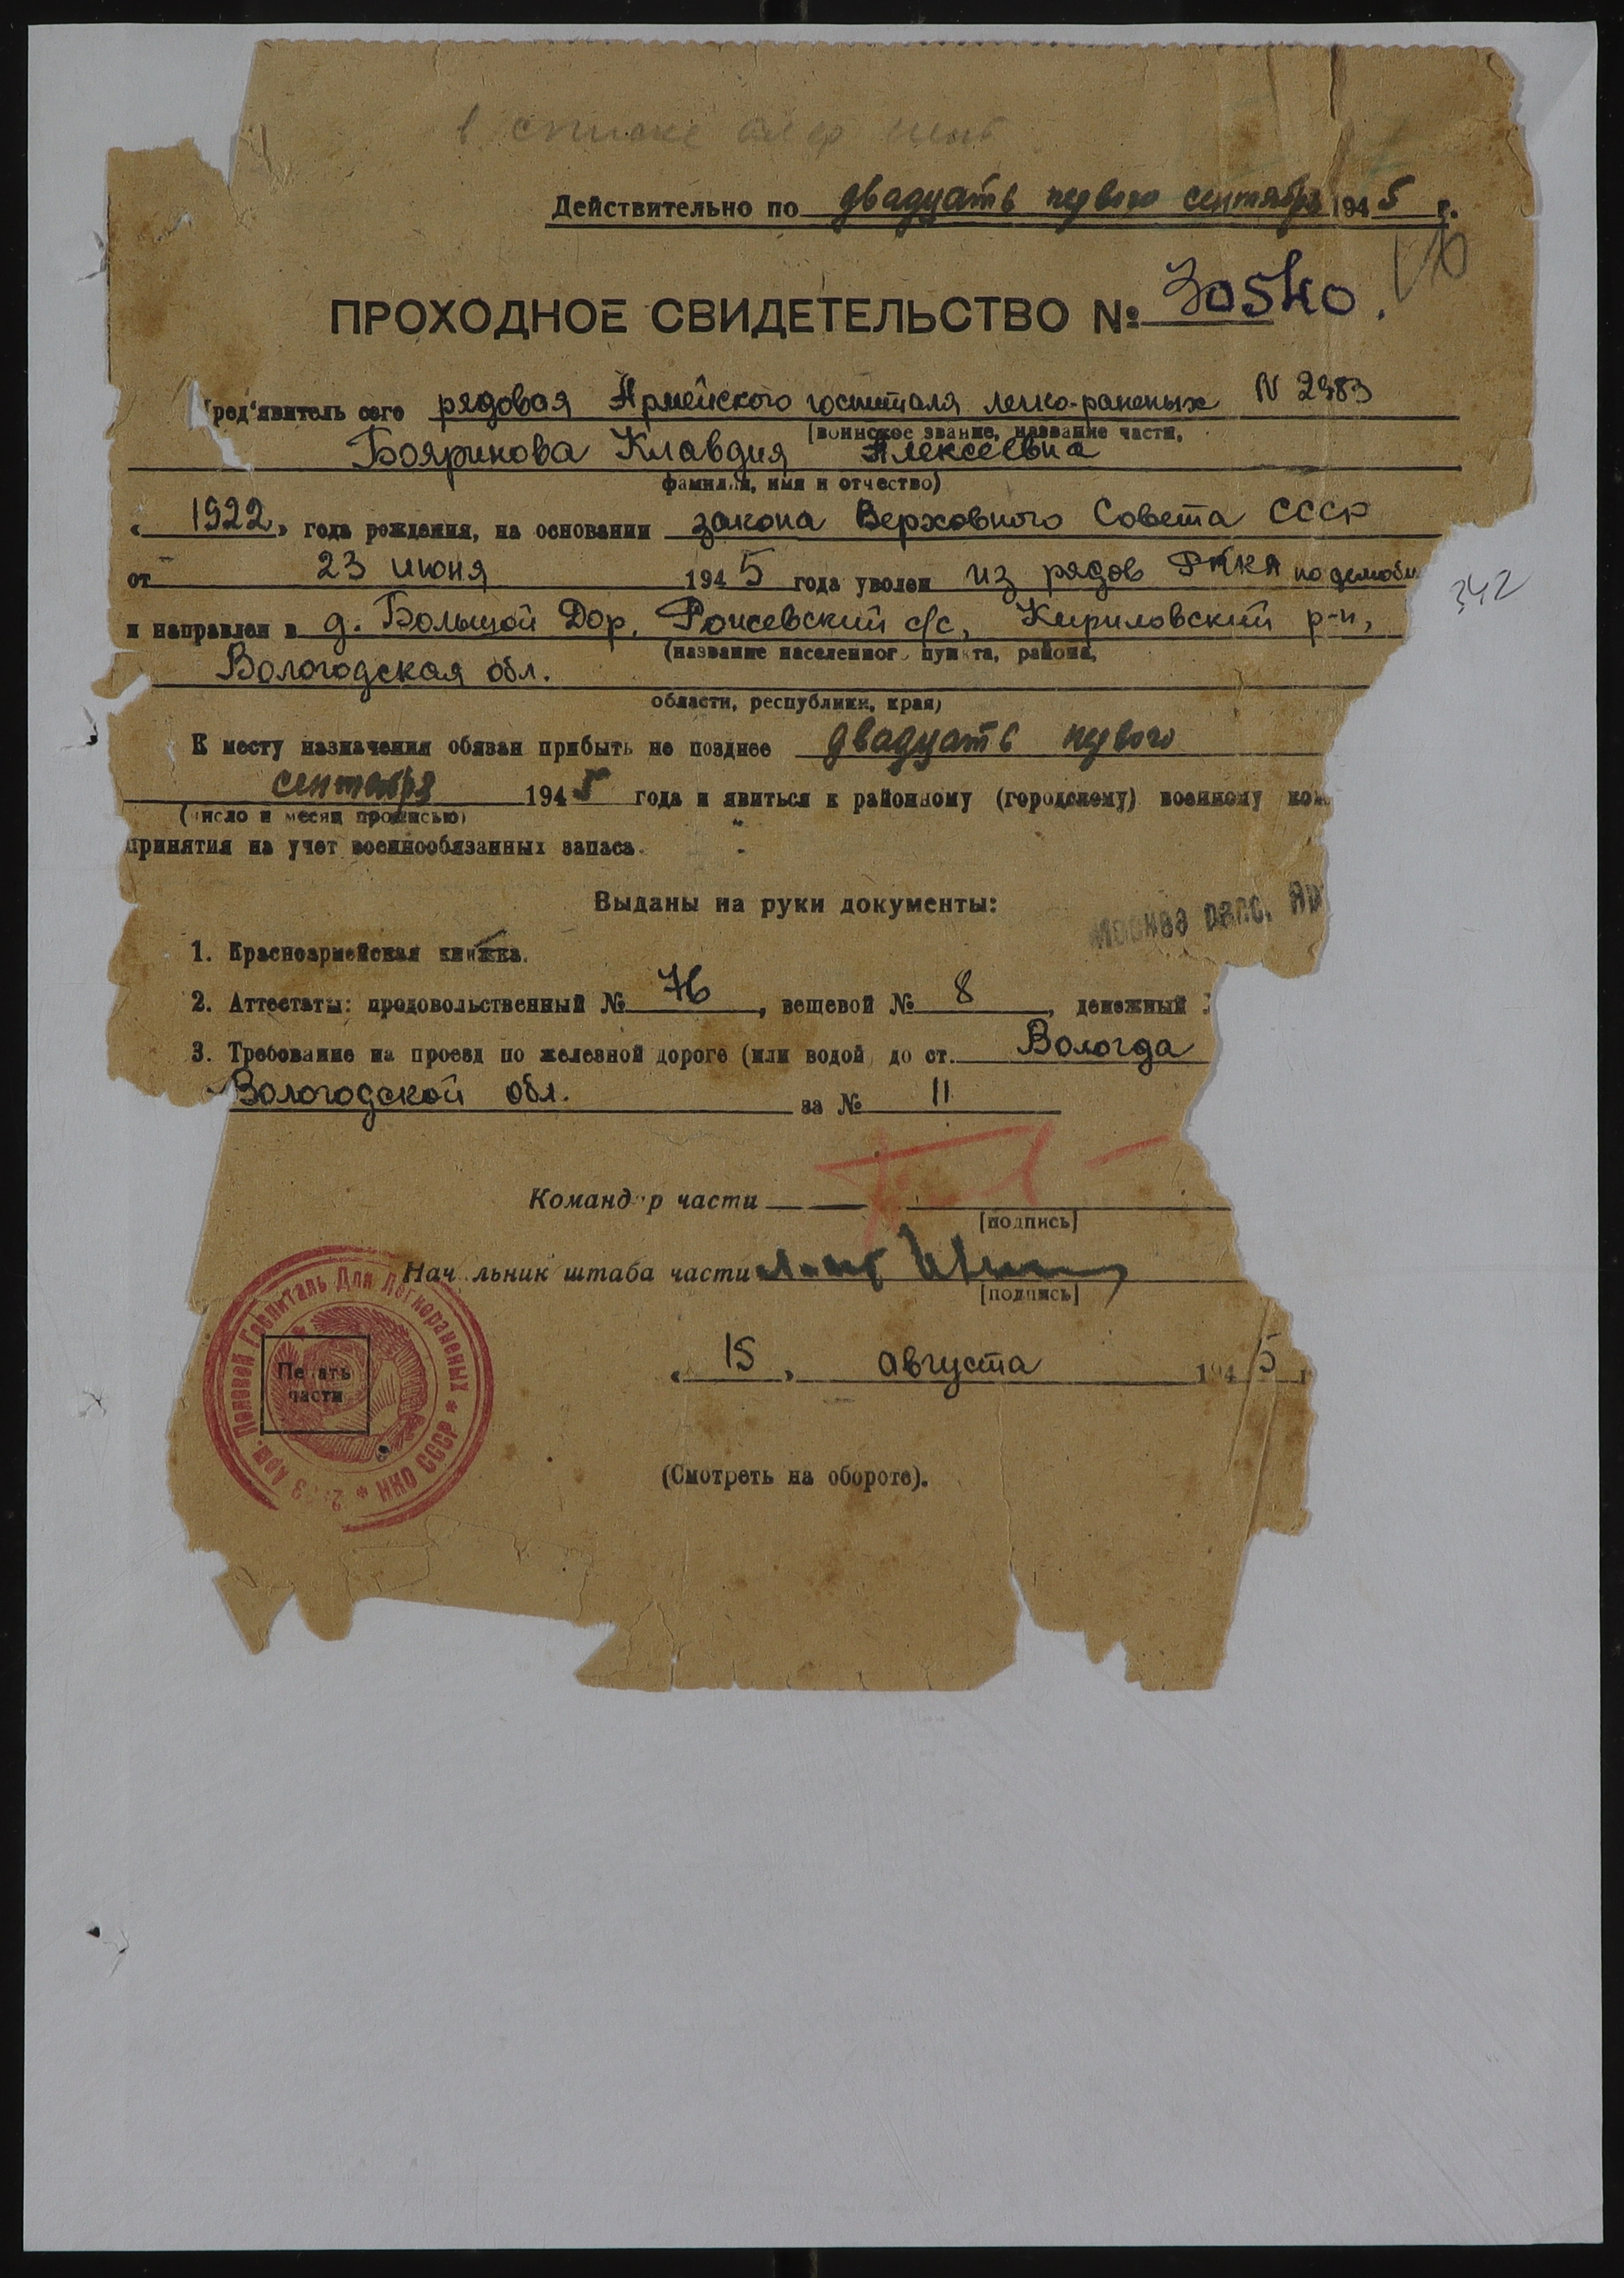 в списке
Действительно по двадцать первого сентября 1945 г.
ПРОХОДНОЕ СВИДЕТЕЛЬСТВО №
ред'явитель сего рядовая Армейского госпиталя легко-раненых N 2983
(воинское звание, название части,
Бояринова Клавдия Алексеевна
фамилия, имя и отчество)
„1922" года рождения, на основании закона Верховного Совета СССР
от 23 июня 1945 года уволен из рядов РККА по демоби
и направлен в д. Большой Дор, с/с, Кириловский р-н,
(название населенного пункта, района,
Вологодская обл.
области, республики, края)
К месту назначения обязан прибыть не позднее двадцать первого
сентября 1945 года и явиться к районному (городскому) военному ком
(число и месяц прописью)
принятия на учет военнообязанных запаса.
Выданы на руки документы:
Москва пасс.
1. Красноармейская книжка.
2. Аттестаты: продовольственный № 76, вещевой № 8, денежный
3. Требование на проезд по железной дороге (или водой) до ст. Вологда
Вологодской обл. за № 11
Команд р части
[подпись]
Нач льник штаба части
[подпись]
Арм. Полевой Госпиталь Для Легкораненых * НКО СССР *
Печать
части
„15" августа 1945 г
(Смотреть на обороте).
342